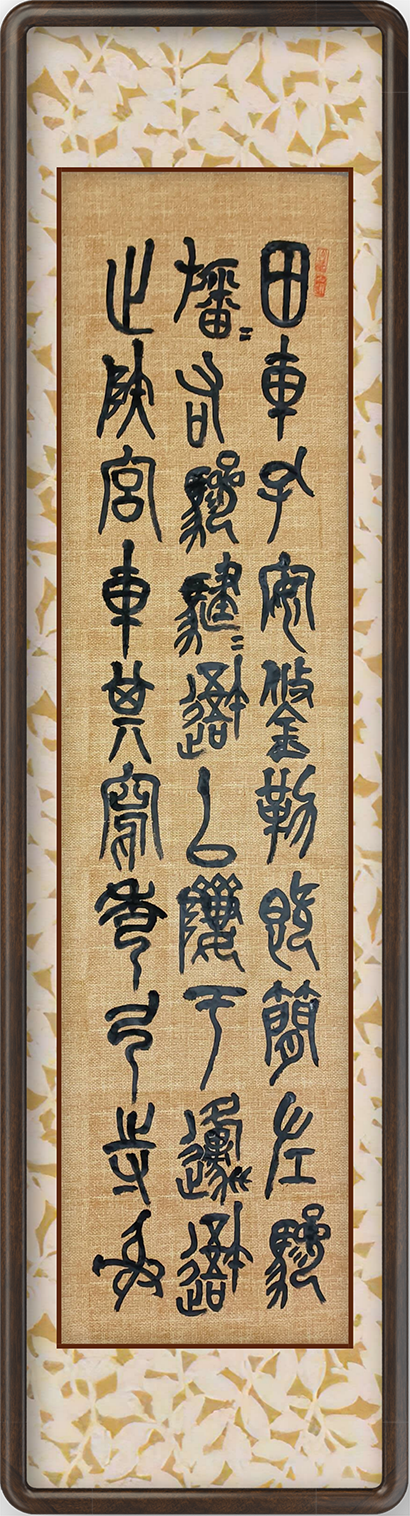 田車孔安鋚勒既簡左驂
旛=右驂騝=吾以隮于邍吾
止陜宮車其寫秀弓寺射